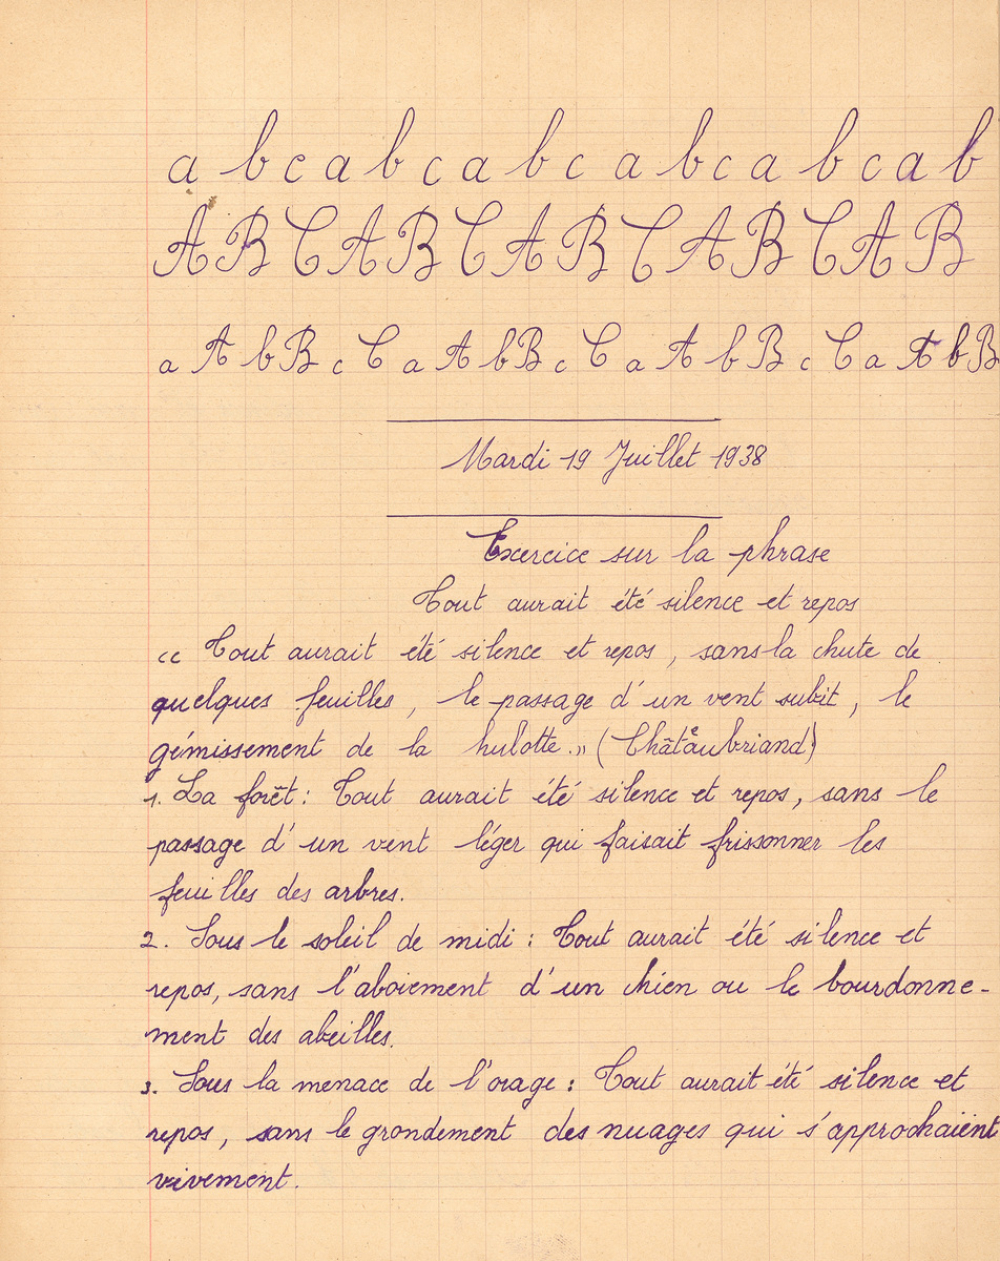 a b c a b c a b c a b c a b c a b
A B C A B C A B C A B C A B
a A b B c C a A b B c C a A b B c C a A b B
Mardi 19 Juillet 1938
Exercice sur la phrase
Tout aurait été silence et repos
« Tout aurait été silence et repos, sans la chute de
quelques feuilles, le passage d'un vent subit, le
gémissement de la hulotte. » (Châteaubriand)
1. La forêt : Tout aurait été silence et repos, sans le
passage d'un vent léger qui faisait frissonner les
feuilles des arbres.
2. Sous le soleil de midi : Tout aurait été silence et
repos, sans l'aboiement d'un chien ou le bourdonne-
ment des abeilles.
3. Sous la menace de l'orage : Tout aurait été silence et
repos, sans le grondement des nuages qui s'approchaient
vivement.